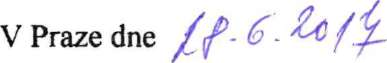 V Praze dne 28.6.2017